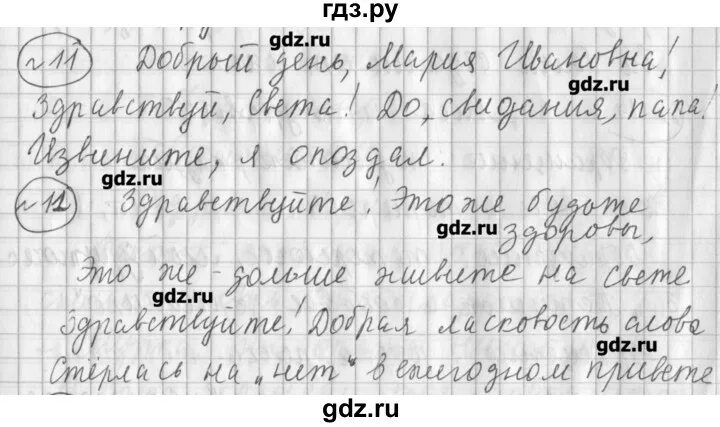 гдз.ру
№11 Добрый день, Мария Ивановна!
gdz.ru
gdz.ru
Здравствуй, Света! До, свидания, папа!
Извините, я опоздал.
gdz.ru
№12 Здравствуйте! Это же будьте
gdz.ru
здоровы,
Это же - дольше живите на свете
gdz.ru
Здравствуйте! Добрая ласковость слова
gdz.ru
Стёрлась на „нет" в ежегодном привете
gdz.ru